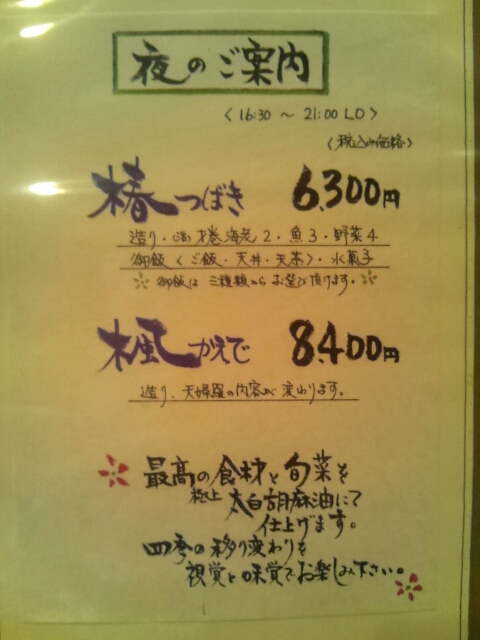 夜のご案内
〈16:30 〜 21:00 LO〉
〈税込み価格〉
椿 つばき 6,300円
造り・巻海老2・魚3・野菜4
御飯〈ご飯・天丼・天茶〉・水菓子
御飯は三種類からお選び頂けます。
楓 かえで 8,400円
造り、天婦羅の内容が変わります。
最高の食材と旬菜を
極上太白胡麻油にて
仕上げます。
四季の移り変わりを
視覚と味覚でお楽しみ下さい。